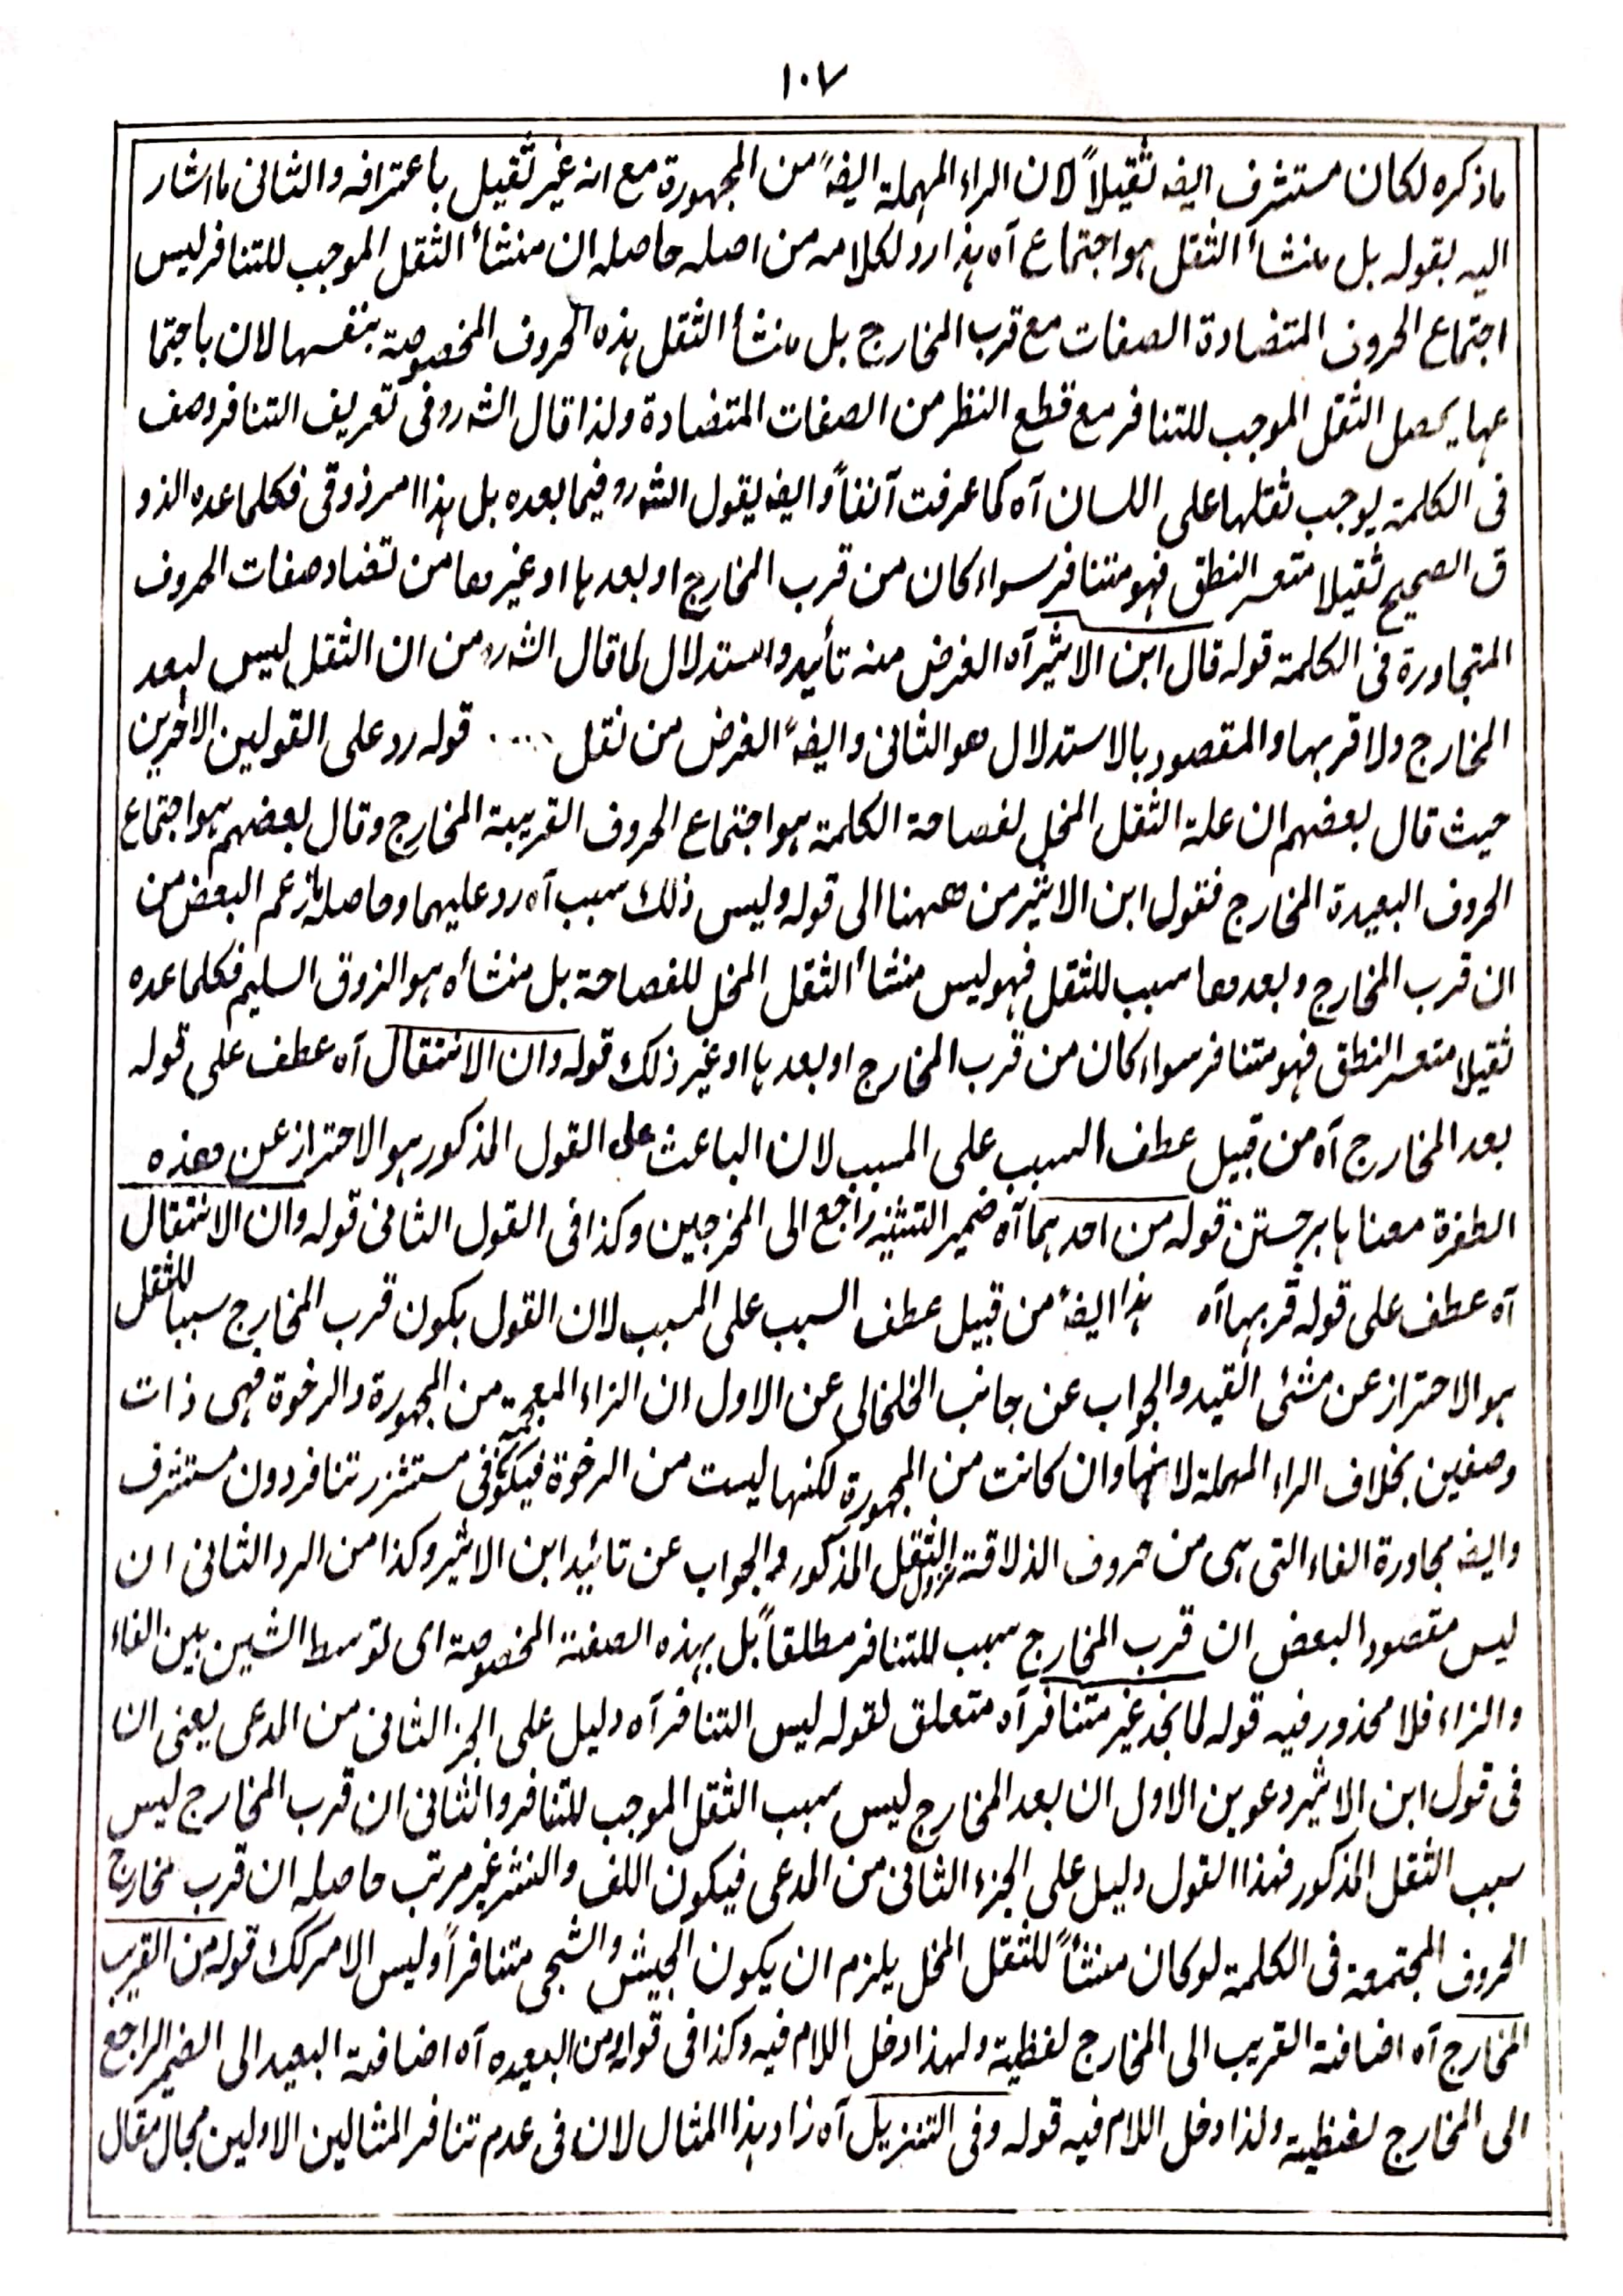 ١٠٧
ماذكره لكان مستشرف ايضه ثقيلاً لان الراء المهملة ايضهً من المجهورة مع انه غير ثقيل باعترافه والثانى ما اشار
اليه بقوله بل منشأ الثقل هو اجتماع آه هذا رد لكلامه من اصله حاصله ان منشأ الثقل الموجب للتنافر ليس
اجتماع الحروف المتضادة الصفات مع قرب المخارج بل منشأ الثقل هذه الحروف المخصوصة بنفسها لان باجتما
عها يحصل الثقل الموجب للتنافر مع قطع النظر من الصفات المتضادة ولذا قال الشه رو فى تعريف التنافر وصف
فى الكلمة يوجب ثقلها على اللسان آه كما عرفت آنفاً وايضه يقول الشه رو فيما بعده بل هذا امر ذوقى فكلما عده الذو
ق الصحيح ثقيلا متعسر النطق فهو متنافر سواء كان من قرب المخارج او بعدها او غيرهما من تضاد صفات الحروف
المتجاورة فى الكلمة قوله قال ابن الاثير آه الغرض منه تأييد واستدلال لما قال الشه ره من ان الثقل ليس لبعد
المخارج ولا قربها والمقصود بالاستدلال هو الثانى وايضهً الغرض من نقل ..... قوله رد على القولين الاخرين
حيث قال بعضهم ان علة الثقل المخل لفصاحة الكلمة هو اجتماع الحروف القريبة المخارج وقال بعضهم هو اجتماع
الحروف البعيدة المخارج فقول ابن الاثير من ههنا الى قوله وليس ذلك سبب آه رد عليهما وحاصله مازعم البعض من
ان قرب المخارج وبعدهما سبب للثقل فهو ليس منشأ الثقل المخل للفصاحة بل منشأه هو الزوق السليم فكلما عده
ثقيلا متعسر النطق فهو متنافر سواء كان من قرب المخارج او بعدها او غير ذلك قوله وان الانتقال آه عطف على قوله
بعد المخارج آه من قبيل عطف السبب على المسبب لان الباعث على القول المذكور هو الاحتراز عن هذه
الطفرة معناها برجستن قوله من احدهما آه ضمير التثنية راجع الى المخرجين وكذا فى القول الثانى قوله وان الانتقال
آه عطف على قوله قربها آه هذا ايضهً من قبيل عطف السبب على المسبب لان القول بكون قرب المخارج سببا للثقل
هو الاحتراز عن مشئى القيد والجواب عن جانب الخلخالى عن الاول ان الزاء المعجمة من المجهورة والرخوة فهى ذات
وصفين بخلاف الراء المهملة لانها وان كانت من المجهورة لكنها ليست من الرخوة فيكون فى مستشزر تنافر دون مستشرف
وايضه مجاورة الفاء التى هى من حروف الذلاقة تزول الثقل المذكور والجواب عن تائيد ابن الاثير وكذا من الرد الثانى ان
ليس مقصود البعض ان قرب المخارج سبب للتنافر مطلقاً بل بهذه الصفة المخصوصة اى توسط الشين بين الفاء
والزاء فلا محذور فيه قوله لما نجد غير متنافر آه متعلق لقوله ليس التنافر آه دليل على الجز الثانى من المدعى يعنى ان
فى قول ابن الاثير دعوين الاول ان بعد المخارج ليس سبب الثقل الموجب للتنافر والثانى ان قرب المخارج ليس
سبب الثقل المذكور فهذا القول دليل على الجزء الثانى من المدعى فيكون اللف والنشر غير مرتب حاصله ان قرب مخارج
الحروف المجتمعة فى الكلمة لو كان منشأً للثقل المخل يلزم ان يكون الجيش والشجى متنافراً وليس الامر كك قوله من القريب
المخارج آه اضافة القريب الى المخارج لفظية ولهذا دخل اللام فيه وكذا فى قوله ومن البعيده آه اضافة البعيد الى الضمير الراجع
الى المخارج لفظية ولذا دخل اللام فيه قوله وفى التنزيل آه زاد هذا المثال لان فى عدم تنافر المثالين الاولين مجال مقال